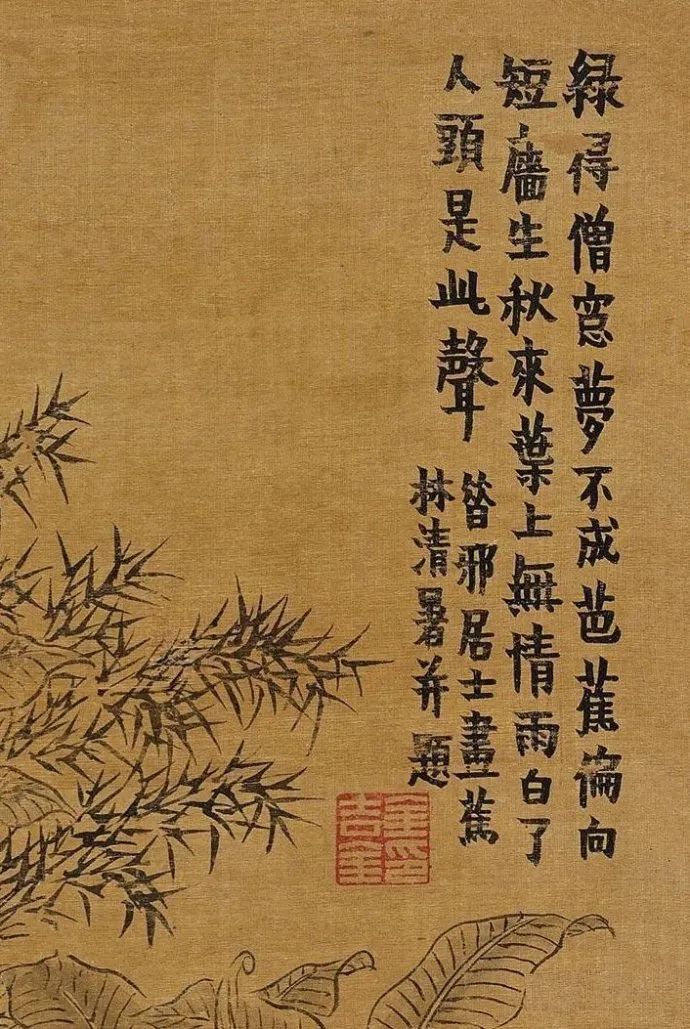 綠得僧窓夢不成芭蕉偏向
短牆生秋來葉上無情雨白了
人頭是此聲
昔邪居士畫蕉
林清暑并題
金吉金印